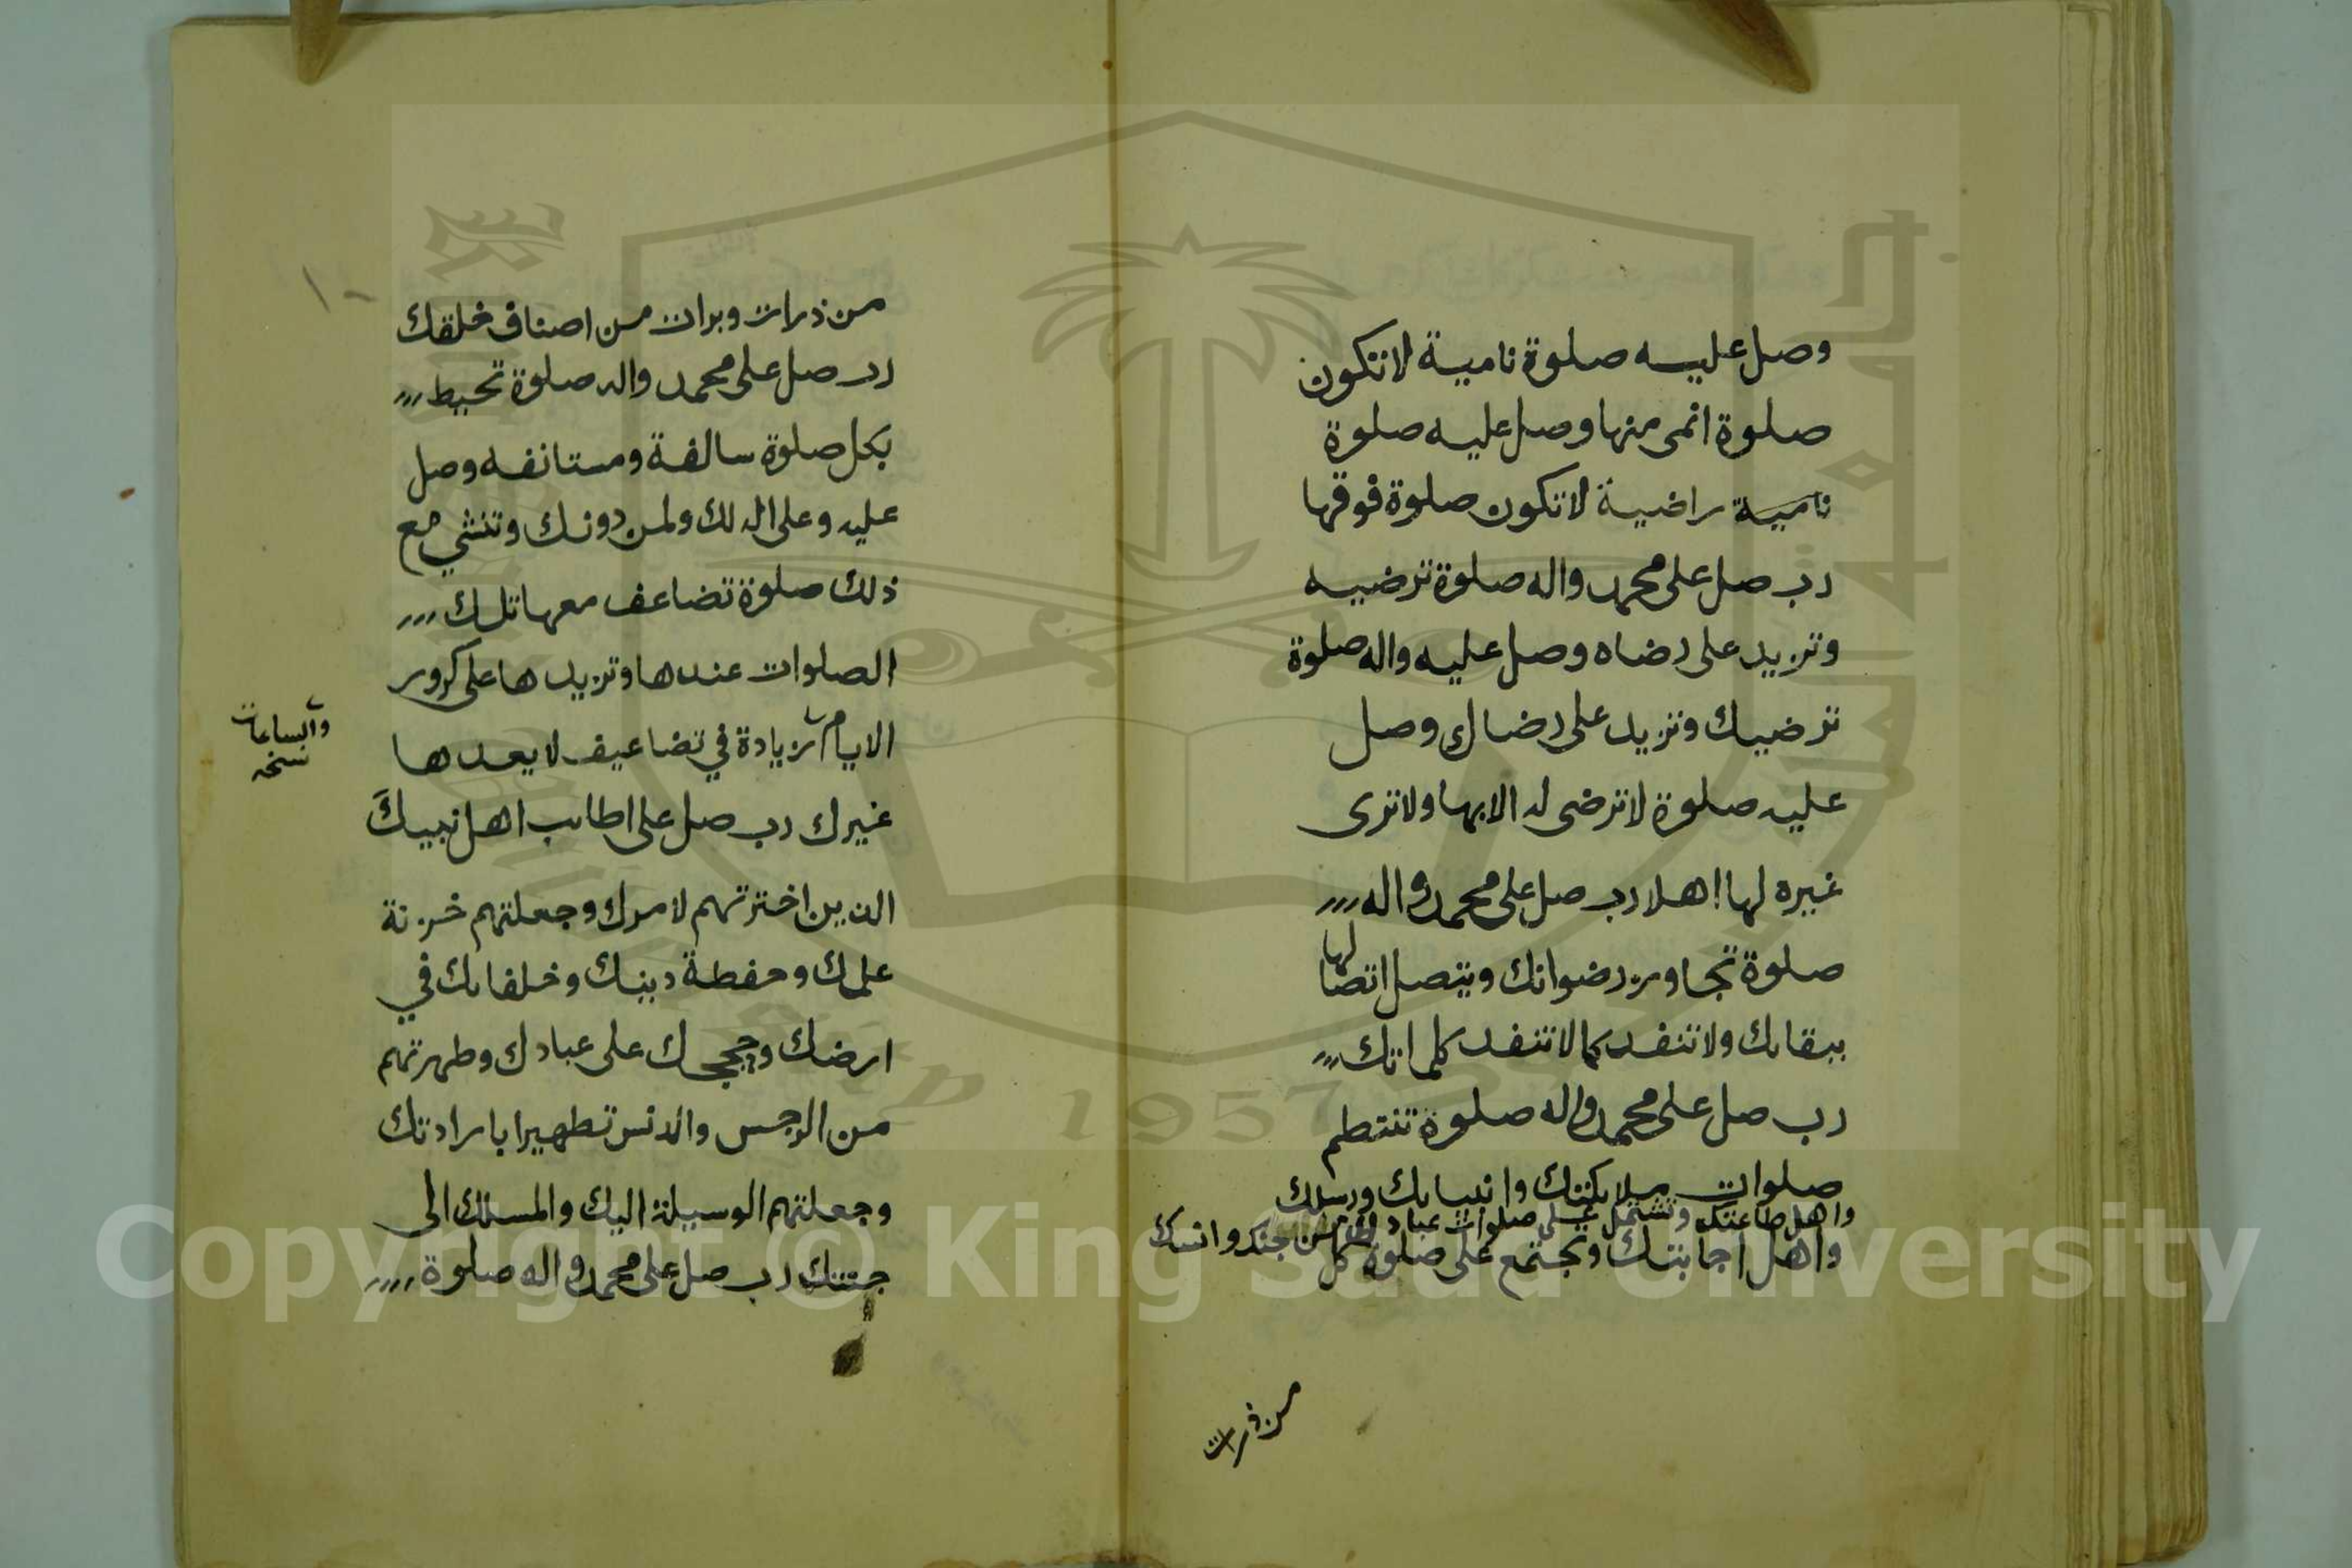 وصل عليه صلوة نامية لا تكون
صلوة انمى منها وصل عليه صلوة
نامية راضية لا تكون صلوة فوقها
رب صل على محمد واله صلوة ترضيه
وتزيد على رضاه وصل عليه واله صلوة
ترضيك وتزيد على رضاك وصل
عليه صلوة لا ترضى له الا بها ولا ترى
غيره لها اهلا رب صل على محمد واله
صلوة تجاوز رضوانك ويتصل اتصالها
ببقائك ولا تنفد كما لا تنفد كلماتك
رب صل على محمد واله صلوة تنتظم
صلوات ملائكتك وانبيائك ورسلك
واهل طاعتك وتشتمل على صلوات عبادك من جنك وانسك
واهل اجابتك وتجتمع على صلوة كل
من ذرات
١٠
من ذرات وبرات من اصناف خلقك
رب صل على محمد واله صلوة تحيط
بكل صلوة سالفة ومستانفه وصل
عليه وعلى اله لك ولمن دونك وتنشي مع
ذلك صلوة تضاعف معها تلك
الصلوات عندها وتزيدها على كرور
الايام زيادة في تضاعيف لا يعدها
والساعات
نسخه
غيرك رب صل على اطائب اهل نبيك
الذين اخترتهم لامرك وجعلتهم خزنة
علمك وحفظة دينك وخلفائك في
ارضك وحججك على عبادك وطهرتهم
من الرجس والدنس تطهيرا بارادتك
وجعلتهم الوسيلة اليك والمسلك الى
جنتك رب صل على محمد واله صلوة
1957
Copyright © King Saud University